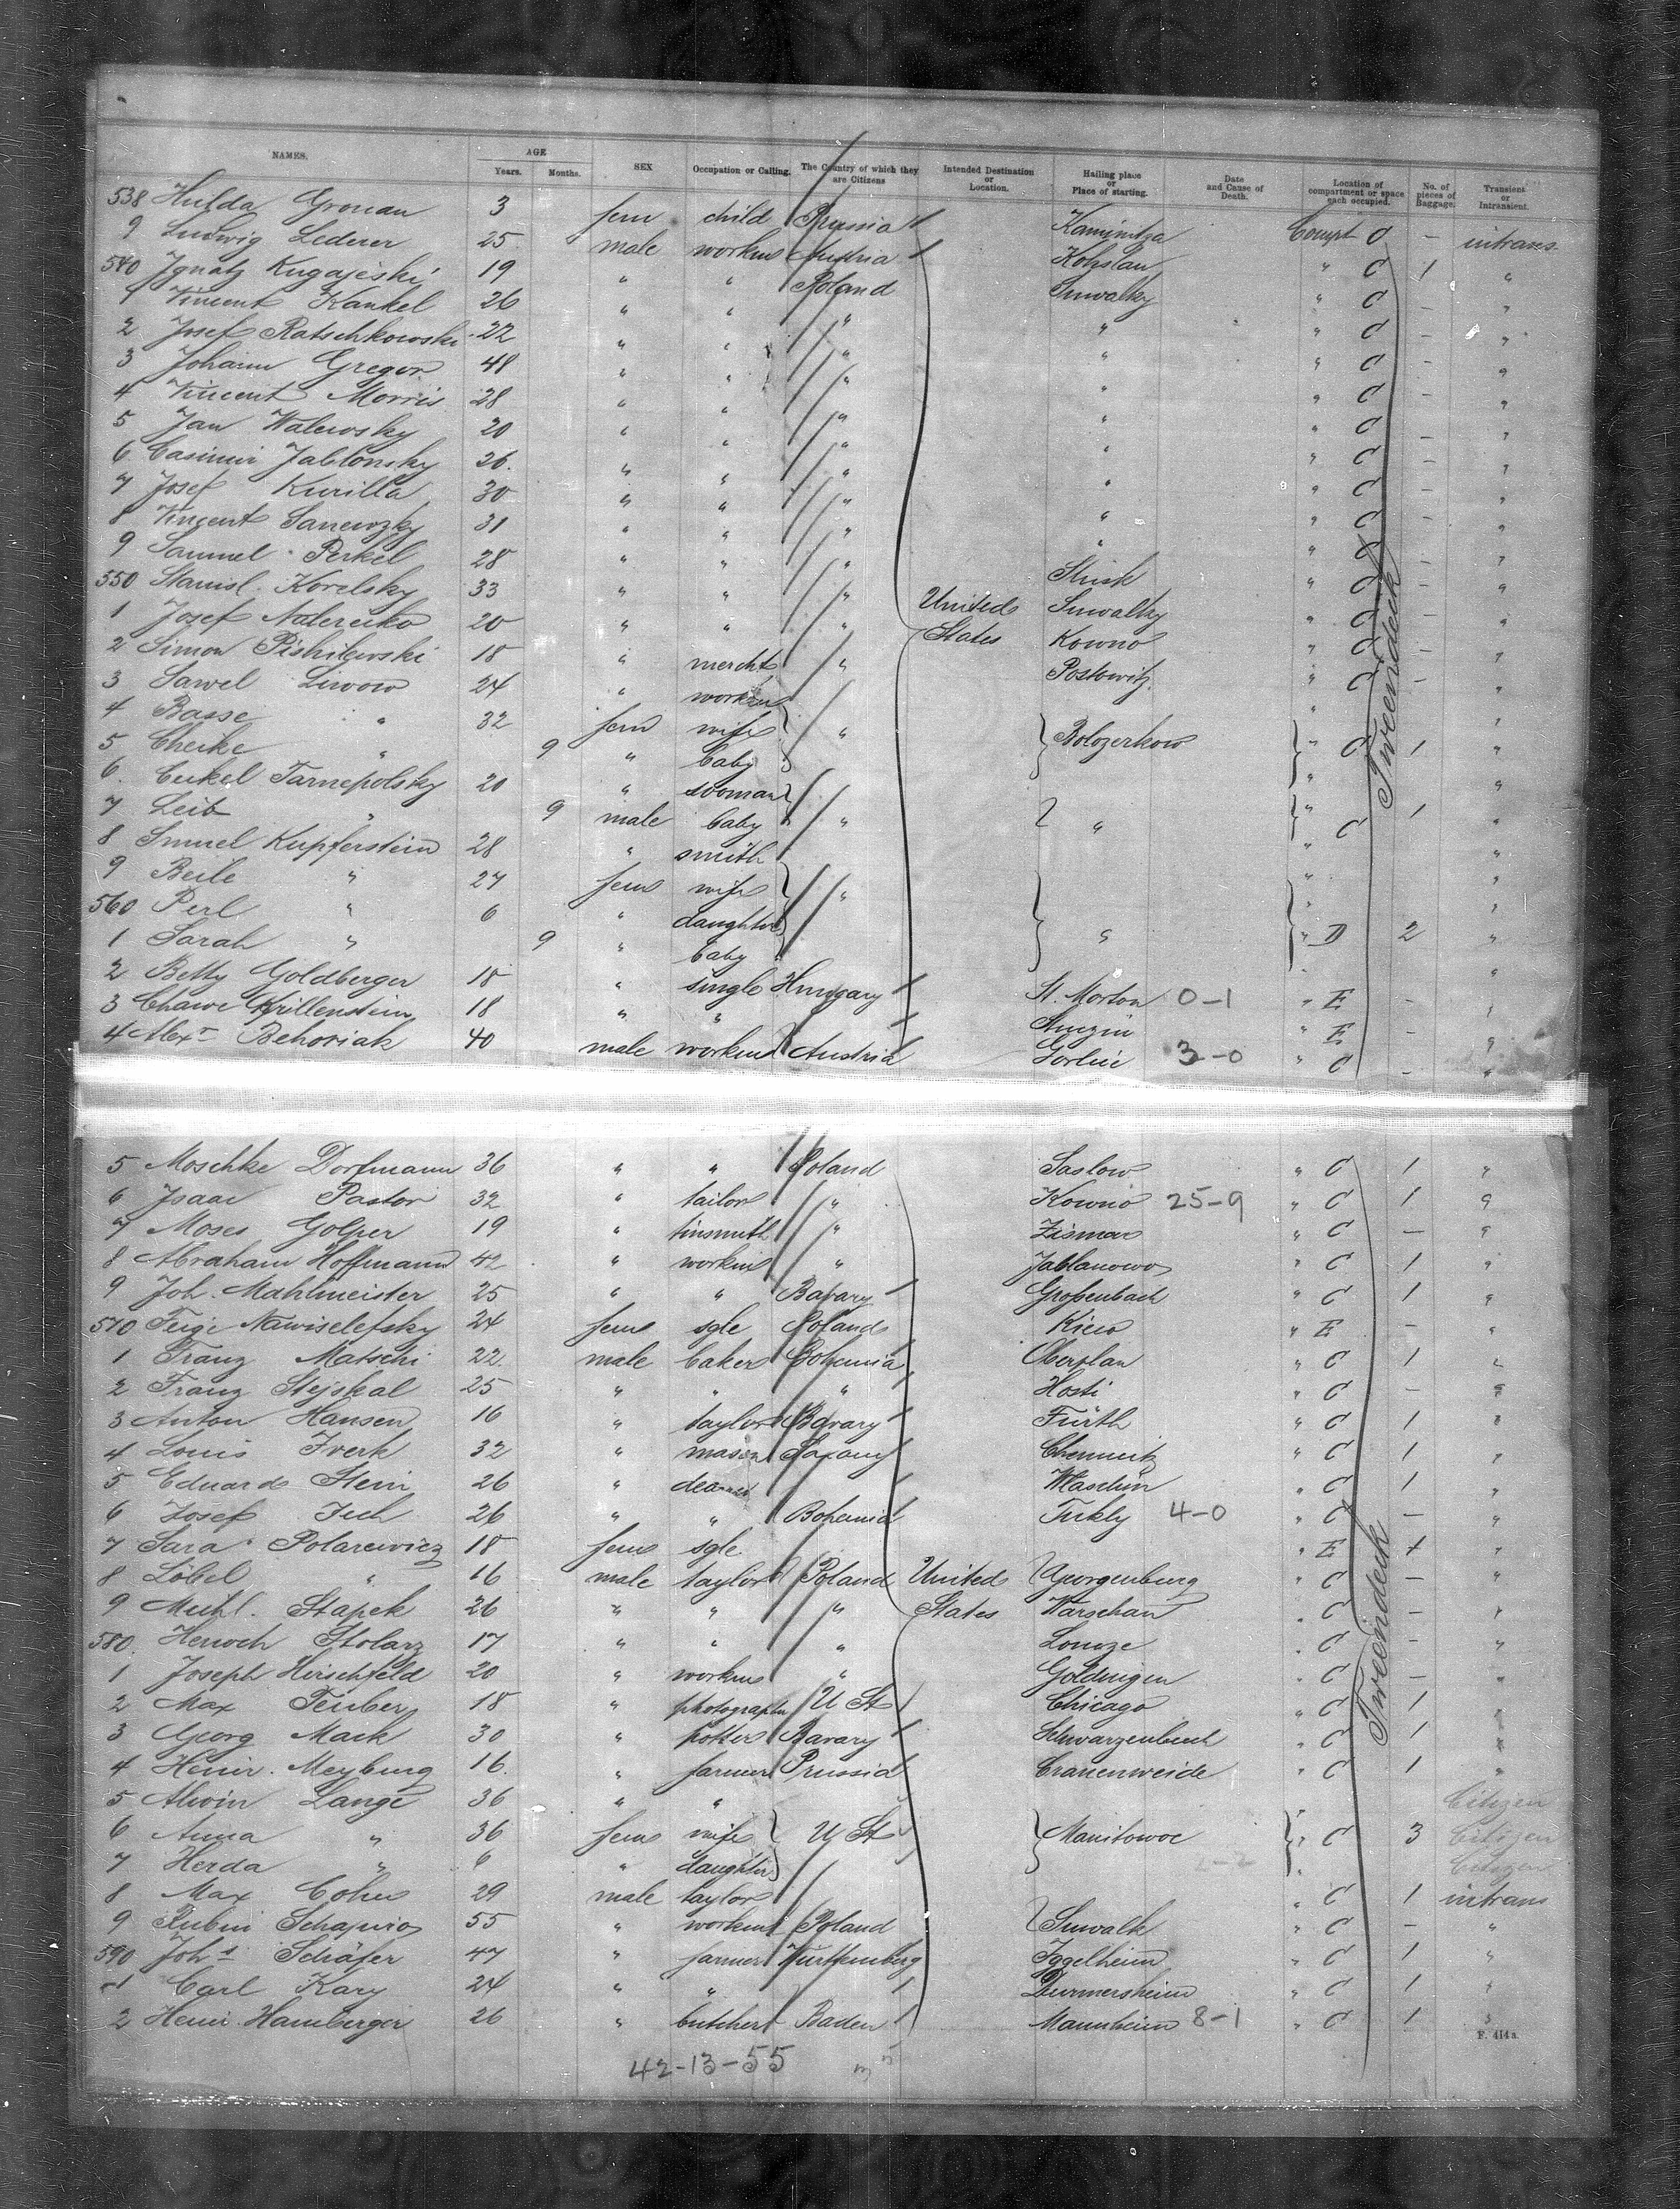 NAMES. AGE Years. Months. SEX Occupation or Calling. The Country of which they are Citizens Intended Destination or Location. Hailing place or Place of starting. Date and Cause of Death. Location of compartment or space each occupied. No. of pieces of Baggage. Transient or Intransient.
538 Hulda Gronau 3 fem child Prussia Kaminitza Compt C – intrans
9 Ludwig Lederer 25 male workm Austria C 1 "
540 Ignatz 19 " " Poland Suwalky " C – "
1 Vincent Kankel 26 " " " " " C – "
2 Josef Ratschkowski 22 " " " " " C – "
3 Johann Gregor 48 " " " " " C – "
4 Vincent Morris 28 " " " " " C – "
5 Jan Walewsky 20 " " " " " C – "
6 Casimir Jablonsky 26 " " " " " C – "
7 Josef Kurilla 30 " " " " " C – "
8 Vincent 31 " " " " " C – "
9 Samuel Perkel 28 " " " " C – "
550 Stanisl. Korelsky 33 " " " United Suwalky " C – "
1 Josef 20 " " " States Kowno " C – "
2 Simon 18 " mercht " " C – "
3 Sawel Liwow 24 " workm "
4 Basse " 32 fem wife " Bolozerkow " C 1 "
5 Cheike " 9 " baby " "
6 Tarnepolsky 20 " woman " "
7 Leib " 9 male baby " " " C 1 "
8 Smuel Kupferstein 28 " smith " "
9 Beile " 27 fem wife " " "
560 Perl " 6 " daughter " " D 2 "
1 Sarah " 9 " baby "
2 Betty Goldberger 18 " single Hungary St. Morton 0–1 " E – "
3 Chawe Krillenstein 18 " " " E – "
4 Alexr Behoriak 40 male workm Austria Gorlin 3–0 " C – "
5 Moschke Dorfmann 36 " " Poland Saslow " C 1 "
6 Isaac Pastor 32 " tailor " Kowno 25–9 " C 1 "
7 Moses Golper 19 " tinsmith " Zismar " C – "
8 Abraham Hoffmann 42 " workm " Jablanowo " C 1 "
9 Joh. Mahlmeister 25 " " Bavary Großenbach " C 1 "
570 Feige Nawiselefsky 24 fem sgle Poland Kiew " E – "
1 Franz Matschi 22 male baker Bohemia Oberplan " C 1 "
2 Franz Stejskal 25 " " " Hosti " C – "
3 Anton Hansen 16 " taylor Bavary Fürth " C 1 "
4 Louis Iverk 32 " mason Saxony Chemnitz " C 1 "
5 Eduard Stein 26 " " C 1 "
6 Josef 26 " " Bohemia 4–0 " C – "
7 Sara Polarewicz 18 fem sgle " E 1 "
8 Löbel " 16 male taylor Poland United Georgenburg " C – "
9 Michl. Stapek 26 " " " States Warschau " C – "
580 Henoch Stolarz 17 " " " Lomze " C – "
1 Joseph Hirschfeld 20 " workm " Goldingen " C – "
2 Max Teuber 18 " photograph U St Chicago " C 1 "
3 Georg Mack 30 " potter Bavary " C 1 "
4 Heinr. Meyburg 16 " farmer Prussia Cranenweide " C 1 "
5 Alwin Lange 36 " " " Citizen
6 Anna " 36 fem wife U St Manitowoc " C 3 Citizen
7 Herda " 6 " daughter 2–2 " Citizen
8 Max Cohn 29 male taylor " C 1 intrans
9 Rubin Schapiro 55 " workm Poland Suwalk " C – "
590 Johs Schäfer 47 " farmer Württemberg Iggelheim " C 1 "
1 Carl Kary 24 " " Durmersheim " C 1 "
2 Heinr. Hamberger 26 " butcher Baden Mannheim 8–1 " C 1 "
Tweendeck
Tweendeck
F. 414a.
42–13–55